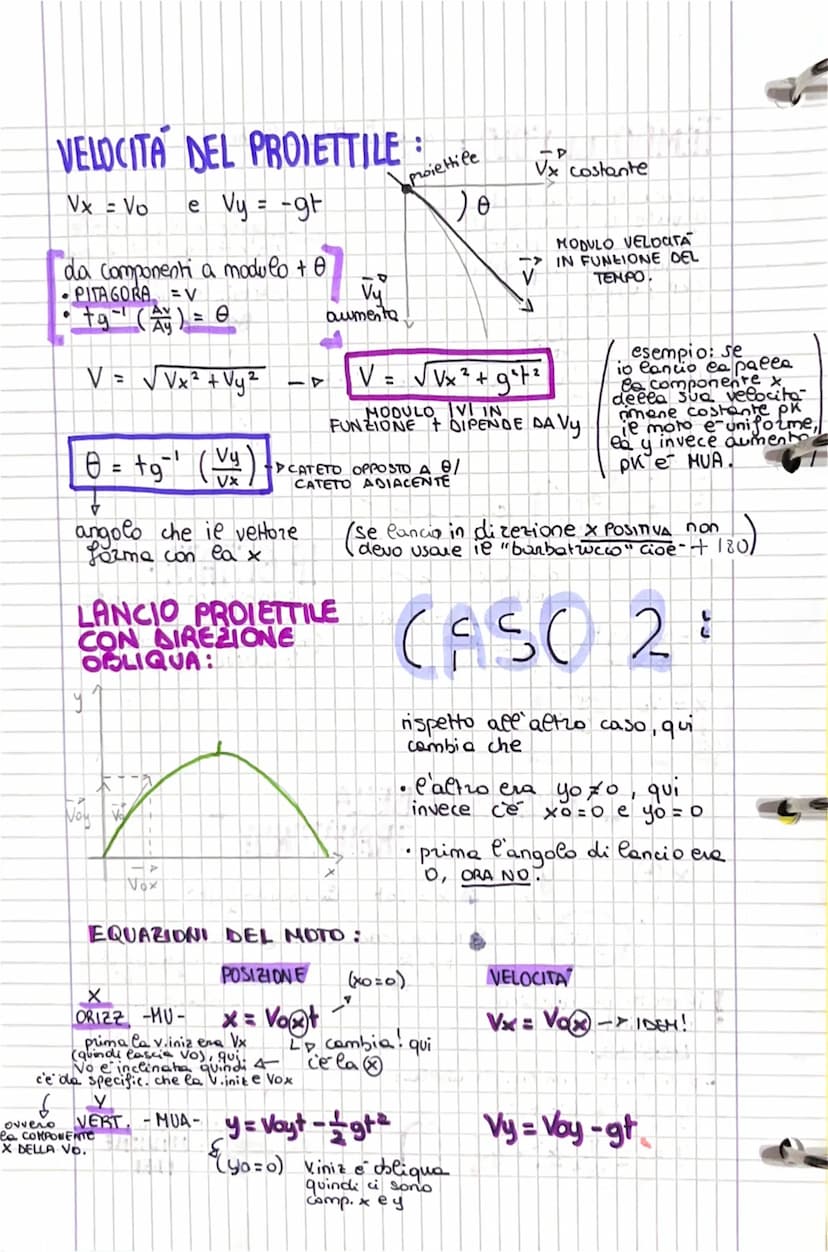 VELOCITÀ DEL PROIETTILE:
proiettile
Vx costante
Vx = V0 e Vy = -gt
θ
MODULO VELOCITÀ
IN FUNZIONE DEL
TEMPO.
V
da componenti a modulo + θ
• PITAGORA = V
• tg⁻¹ (Av/Ay) = θ
Vy
aumenta
V = √Vx² + Vy² → V = √Vx² + g²t²
MODULO |V| IN
FUNZIONE t DIPENDE DA Vy
esempio: se
io lancio la palla
la componente x
della sua velocità
rimane costante pk
il moto è uniforme,
la y invece aumenta
pk è MUA.
θ = tg⁻¹ (Vy/Vx) → CATETO OPPOSTO A θ/
CATETO ADIACENTE
angolo che il vettore
forma con la x
(se lancio in direzione X POSITIVA non
devo usare il "barbatrucco" cioè + 180)
LANCIO PROIETTILE
CON DIREZIONE
OBLIQUA:
CASO 2:
y
V0y
V0
V0x
x
rispetto all'altro caso, qui
cambia che
• l'altro era y0≠0, qui
invece c'è x0=0 e y0=0
• prima l'angolo di lancio era
0, ORA NO.
EQUAZIONI DEL MOTO:
POSIZIONE
VELOCITÀ
(x0=0)
X
ORIZZ. -MU- x = V0xt
Vx = V0x → IDEM!
cambia! qui
c'è la x
prima la v.iniz era Vx
(quindi lascia V0), qui
V0 è inclinata quindi
c'è da specific. che la v.iniz è V0x
ovvero
la COMPONENTE
X DELLA V0.
Y
VERT. -MUA- y = V0yt - ½gt²
Vy = V0y - gt.
(y0=0) V.iniz è obliqua
quindi ci sono
comp. x e y